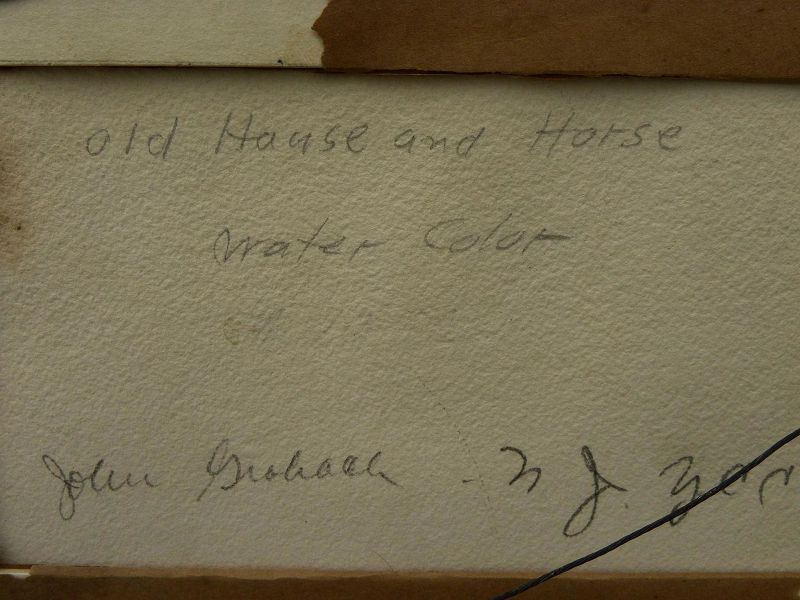 old House and Horse
Water Color
John Grabach - N J.